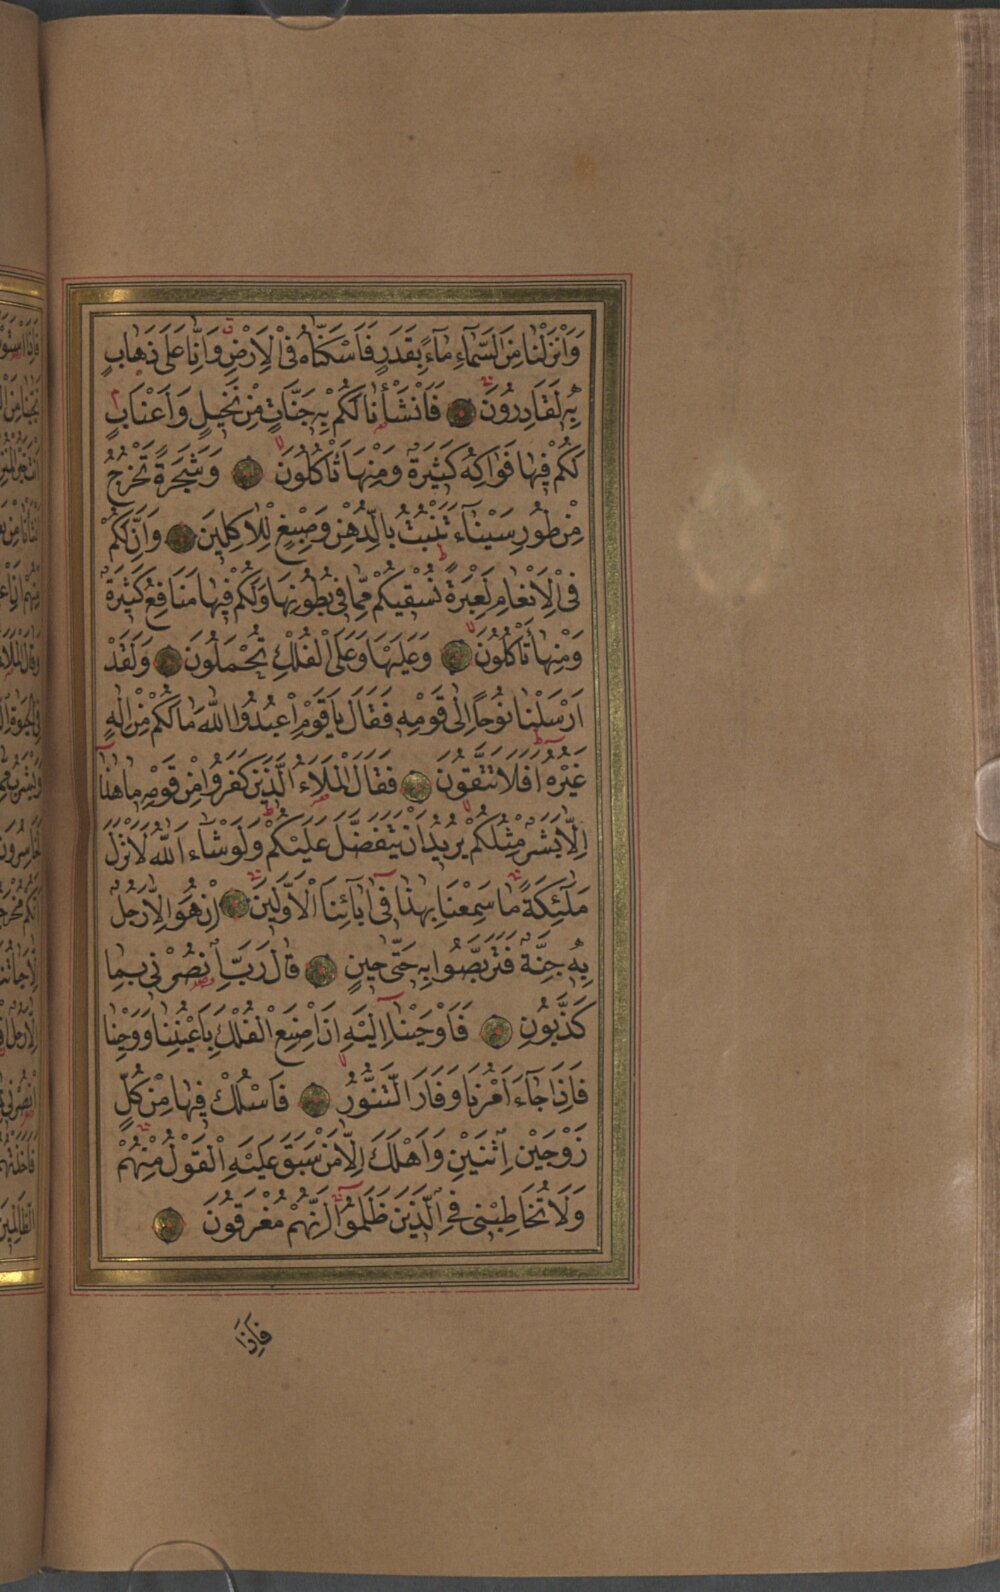 وَاَنْزَلْنَا مِنَ السَّمَآءِ مَآءً بِقَدَرٍ فَاَسْكَنَّاهُ فِى الْاَرْضِ وَاِنَّا عَلٰى ذَهَابٍ
بِهٖ لَقَادِرُونَ فَاَنْشَأْنَا لَكُمْ بِهٖ جَنَّاتٍ مِنْ نَخٖيلٍ وَاَعْنَابٍ
لَكُمْ فٖيهَا فَوَاكِهُ كَثٖيرَةٌ وَمِنْهَا تَأْكُلُونَ وَشَجَرَةً تَخْرُجُ
مِنْ طُورِ سَيْنَآءَ تَنْبُتُ بِالدُّهْنِ وَصِبْغٍ لِلْاٰكِلٖينَ وَاِنَّ لَكُمْ
فِى الْاَنْعَامِ لَعِبْرَةً نُسْقٖيكُمْ مِمَّا فٖى بُطُونِهَا وَلَكُمْ فٖيهَا مَنَافِعُ كَثٖيرَةٌ
وَمِنْهَا تَأْكُلُونَ وَعَلَيْهَا وَعَلَى الْفُلْكِ تُحْمَلُونَ وَلَقَدْ
اَرْسَلْنَا نُوحًا اِلٰى قَوْمِهٖ فَقَالَ يَا قَوْمِ اعْبُدُوا اللّٰهَ مَا لَكُمْ مِنْ اِلٰهٍ
غَيْرُهُ اَفَلَا تَتَّقُونَ فَقَالَ الْمَلَاءُ الَّذٖينَ كَفَرُوا مِنْ قَوْمِهٖ مَا هٰذَا
اِلَّا بَشَرٌ مِثْلُكُمْ يُرٖيدُ اَنْ يَتَفَضَّلَ عَلَيْكُمْ وَلَوْ شَآءَ اللّٰهُ لَاَنْزَلَ
مَلٰٓئِكَةً مَا سَمِعْنَا بِهٰذَا فٖى اٰبَآئِنَا الْاَوَّلٖينَ اِنْ هُوَ اِلَّا رَجُلٌ
بِهٖ جِنَّةٌ فَتَرَبَّصُوا بِهٖ حَتّٰى حٖينٍ قَالَ رَبِّ انْصُرْنٖى بِمَا
كَذَّبُونِ فَاَوْحَيْنَا اِلَيْهِ اَنِ اصْنَعِ الْفُلْكَ بِاَعْيُنِنَا وَوَحْيِنَا
فَاِذَا جَآءَ اَمْرُنَا وَفَارَ التَّنُّورُ فَاسْلُكْ فٖيهَا مِنْ كُلٍّ
زَوْجَيْنِ اثْنَيْنِ وَاَهْلَكَ اِلَّا مَنْ سَبَقَ عَلَيْهِ الْقَوْلُ مِنْهُمْ
وَلَا تُخَاطِبْنٖى فِى الَّذٖينَ ظَلَمُوا اِنَّهُمْ مُغْرَقُونَ
فَاِذَا